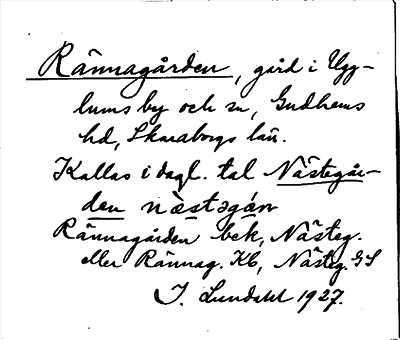 Rännagården, gård i Ugg-
lums by och sn, Gudhems
hd, Skaraborgs län.
Kallas i dagl. tal Nästegår-
den næstəgán
Rännagården bek, Nästeg.
eller Rännag. Kb, Nästeg. GS
I. Lundahl 1927.